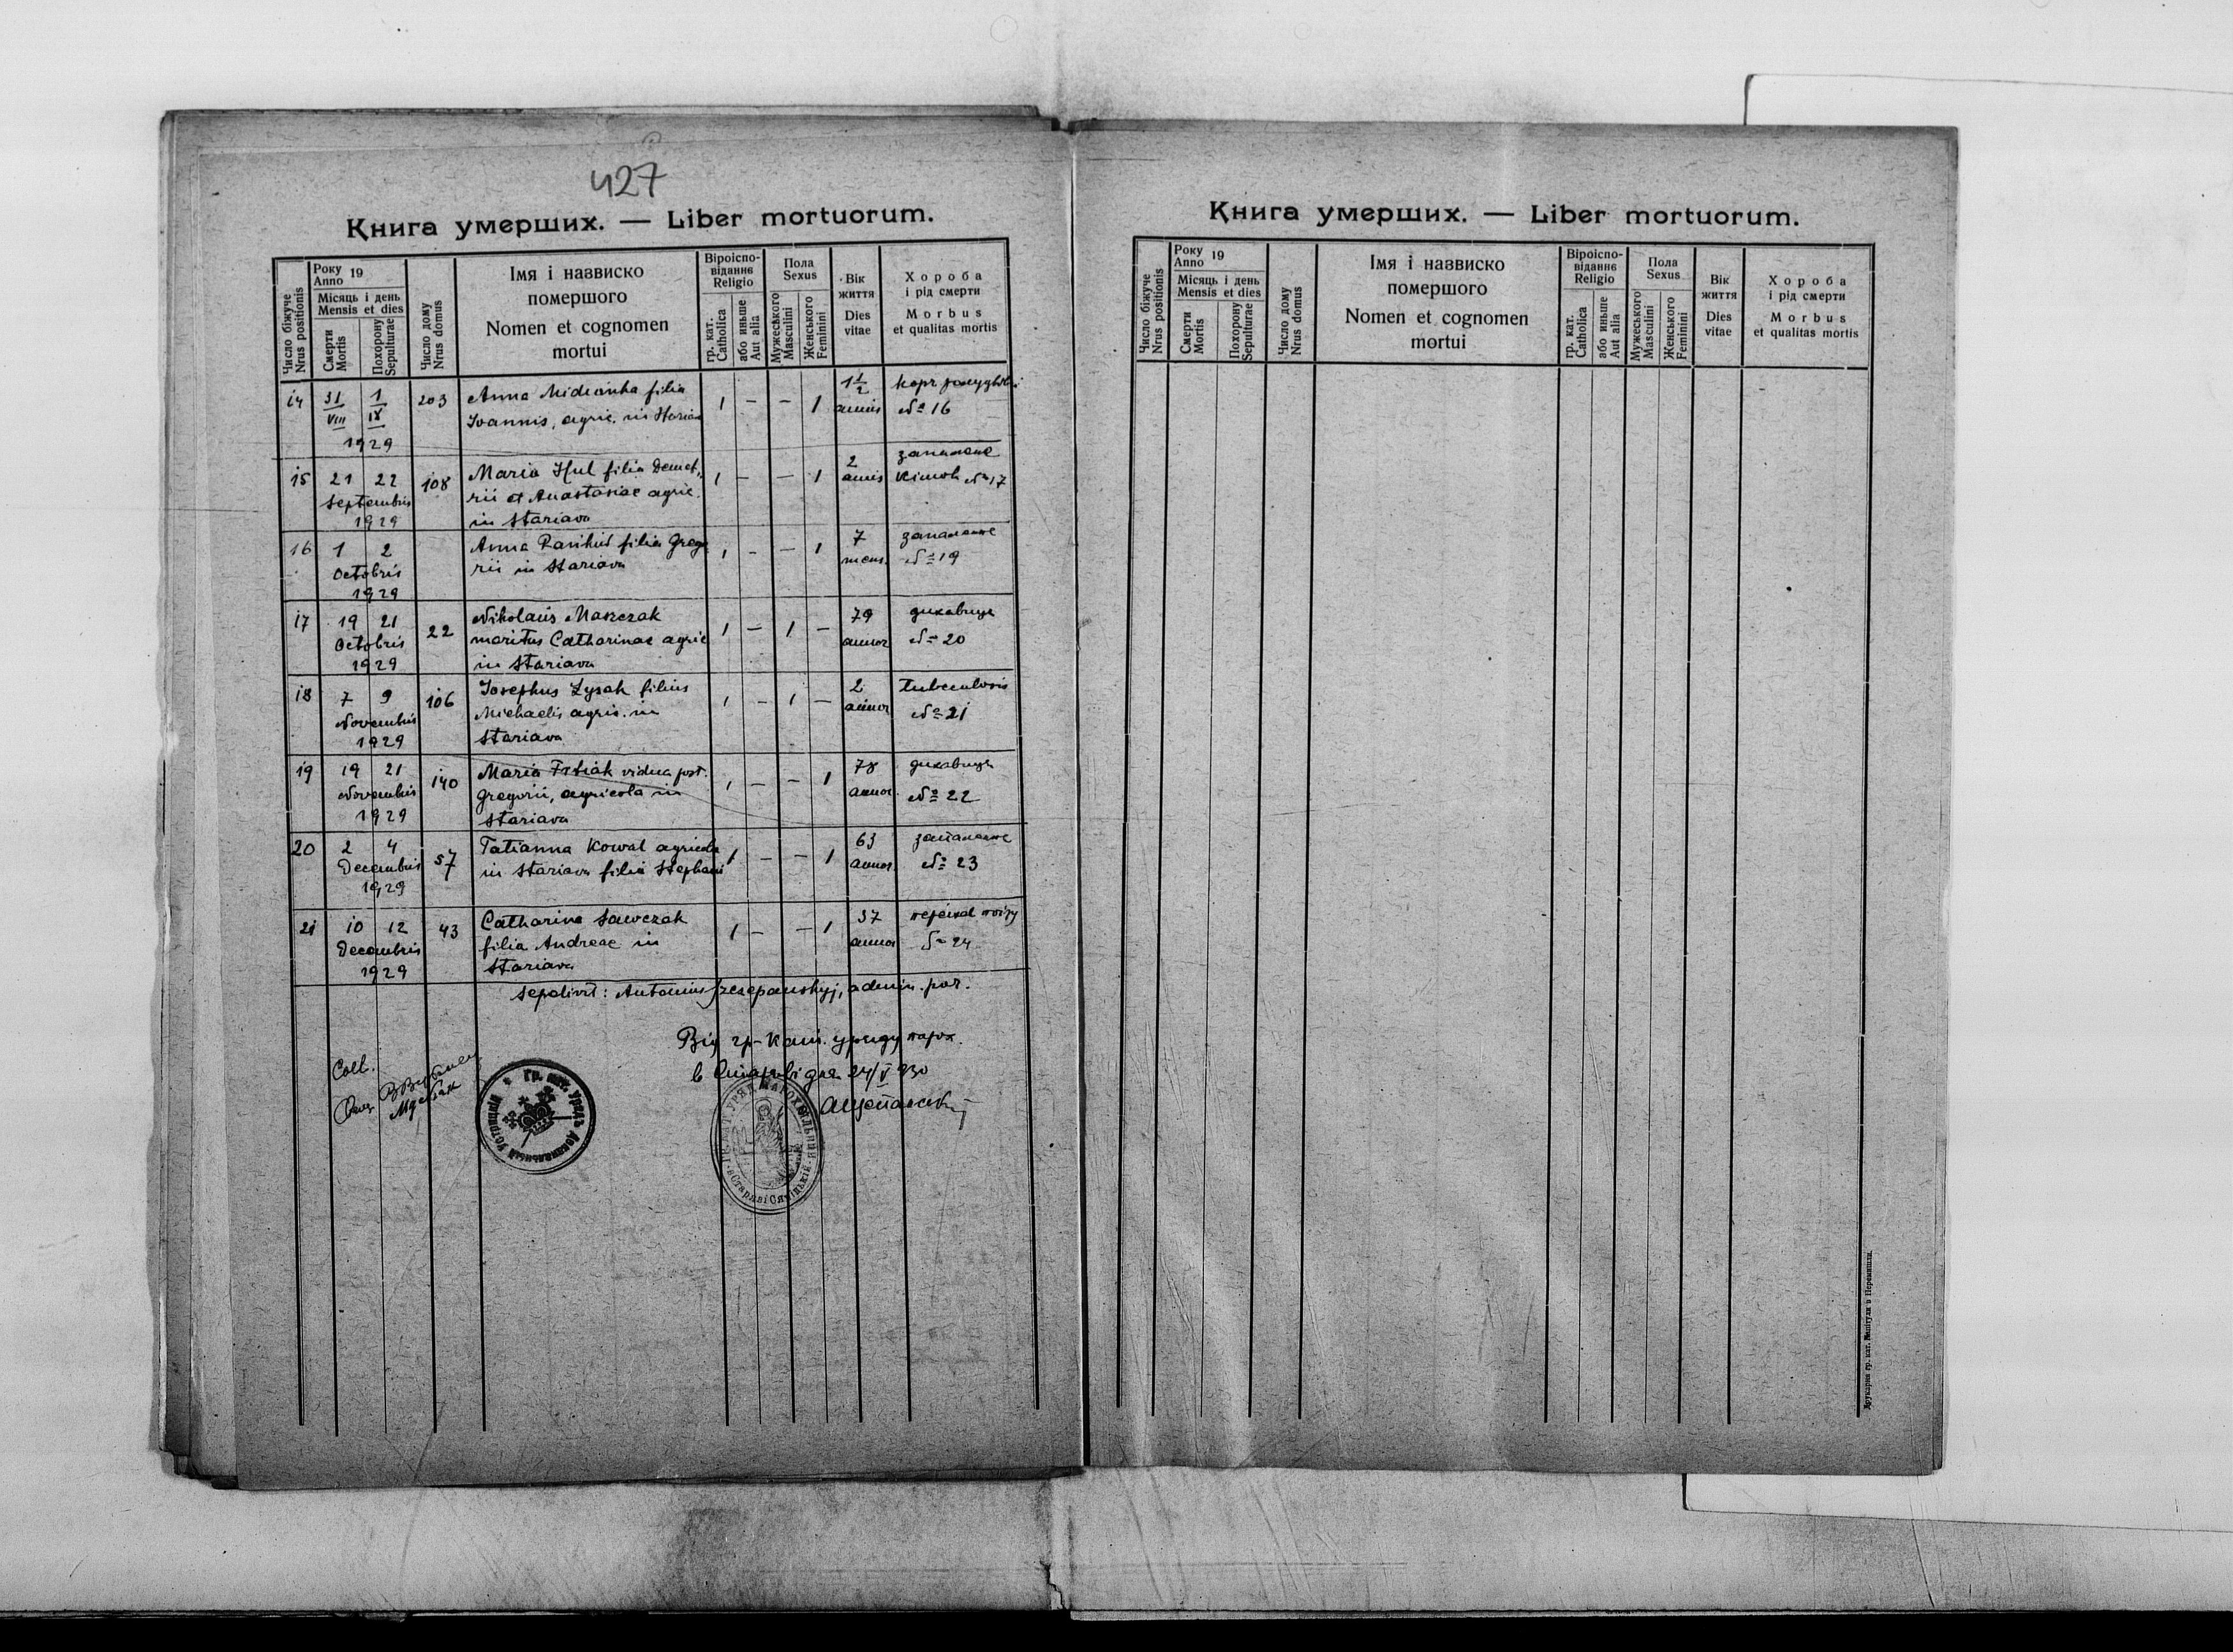 427
Книга умерших. — Liber mortuorum.
Число біжуче
Nrus positionis
Року
Anno 19
Місяць і день
Mensis et dies
Смерти
Mortis
Похорону
Sepulturae
Число дому
Nrus domus
Імя і назвиско
помершого
Nomen et cognomen
mortui
Віроіспо-
віданнє
Religio
гр. кат.
Catholica
або иньше
Aut alia
Пола
Sexus
Мужеського
Masculini
Женського
Feminini
Вік
життя
Dies
vitae
Хороба
і рід смерти
Morbus
et qualitas mortis
14 31/VIII 1/IX 1929 203
Anna filia
Ioannis, agric. in
1 — — 1
1 1/2
annis
№ 16
15 21 22 108
Septembris
1929
Maria filia Demet-
rii et Anastasiae agric.
in Stariava
1 — — 1
2
annis
запаленє
№ 17
16 1 2
Octobris
1929
Anna filia Grego
rii in Stariava
1 — — 1
7
mens.
запаленє
№ 19
17 19 21 22
Octobris
1929
Nikolaus
maritus Catharinae agric
in Stariava
1 — 1 —
79
annor
№ 20
18 7 9 106
Novembris
1929
Josephus Lysak filius
Michaelis agric. in
Stariava
1 — 1 —
2
annor
tuberculosis
№ 21
19 19 21 140
Novembris
1929
Maria vidua post.
Gregorii, agricola in
Stariava
1 — — 1
78
annor.
№ 22
20 2 4 57
Decembris
1929
Tatianna Kowal agricola
in Stariava filia Stephani
1 — — 1
63
annor.
запаленє
№ 23
21 10 12 43
Decembris
1929
Catharina Sawczak
filia Andreae in
Stariava
1 — — 1
37
annor
№ 24
sepelivit: Antonius Szczepanskyj, admin. par.
Від гр-кат. уряду парох.
в Стариві дня 24/V 930
Coll.
Книга умерших. — Liber mortuorum.
Число біжуче
Nrus positionis
Року
Anno 19
Місяць і день
Mensis et dies
Смерти
Mortis
Похорону
Sepulturae
Число дому
Nrus domus
Імя і назвиско
помершого
Nomen et cognomen
mortui
Віроіспо-
віданнє
Religio
гр. кат.
Catholica
або иньше
Aut alia
Пола
Sexus
Мужеського
Masculini
Женського
Feminini
Вік
життя
Dies
vitae
Хороба
і рід смерти
Morbus
et qualitas mortis